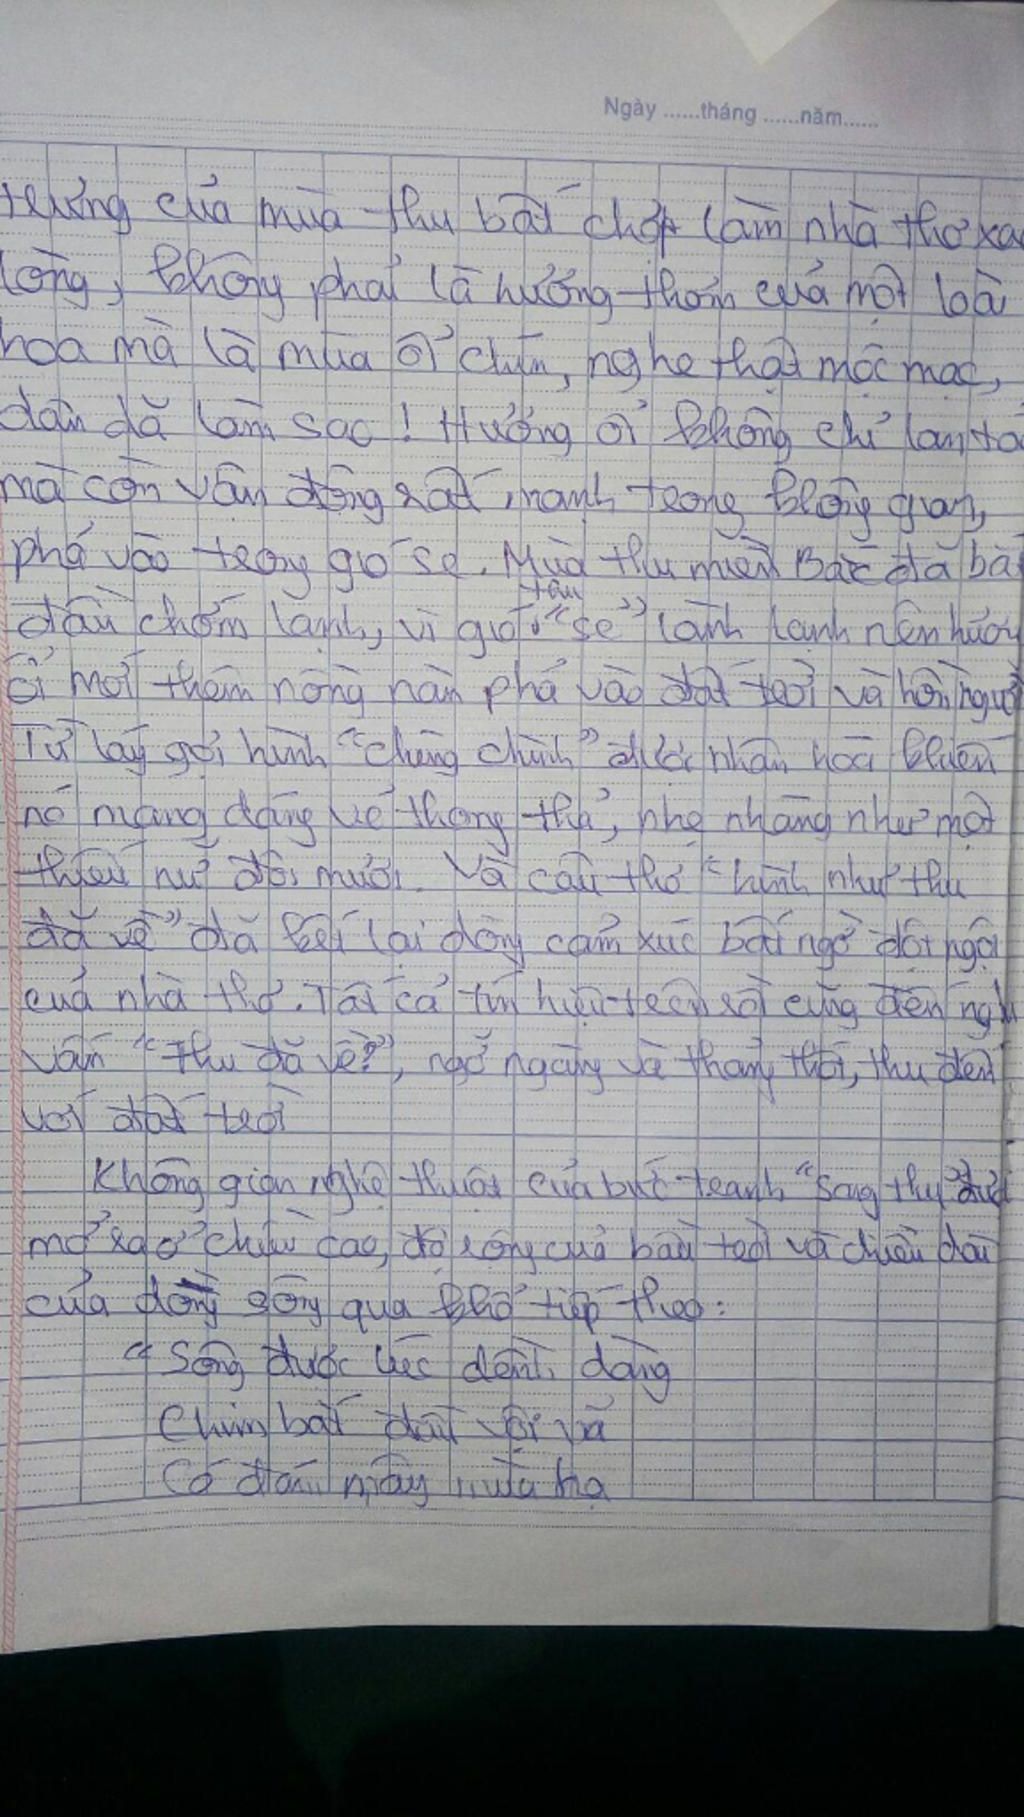 Ngày ......tháng ......năm......
trưng của mùa thu bất chợt làm nhà thơ xao
lòng, không phải là hương thơm của một loài
hoa mà là mùa ổi chín, nghe thật mộc mạc,
dân dã làm sao! Hương ổi không chỉ lan tỏa
mà còn vận động rất mạnh trong không gian,
phả vào trong gió se. Mùa thu miền Bắc đã bắt
đầu chớm lạnh, vì gió "se" lành lạnh nên hương
ổi mới thêm nồng nàn phả vào đất trời và hồn người
Từ láy gợi hình "chùng chình" được nhân hoá khiến
nó mang dáng vẻ thong thả, nhẹ nhàng như một
thiếu nữ đôi mươi. Và câu thơ "hình như thu
đã về" đã kết lại dòng cảm xúc bất ngờ đột ngột
của nhà thơ. Tất cả tín hiệu trên rồi cũng đến nghi
vấn "Thu đã về?", ngỡ ngàng và thảng thốt, thu đến
với đất trời
Không gian nghệ thuật của bức tranh "Sang thu" được
mở ra ở chiều cao, độ rộng của bầu trời và chiều dài
của dòng sông qua khổ tiếp theo:
"Sông được lúc dềnh dàng
Chim bắt đầu vội vã
Có đám mây mùa hạ